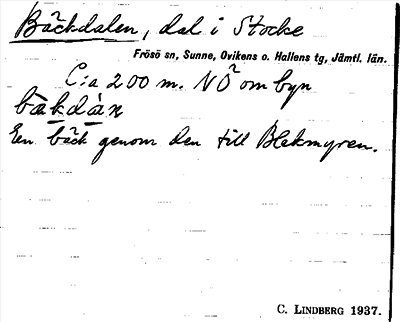 Bäckdalen, dal i Stocke
Frösö sn, Sunne, Ovikens o. Hallens tg, Jämtl. län.
C:a 200 m. NÖ om byn
bäkdàɳ
En bäck genom den till Blekmyren.
C. LINDBERG 1937.